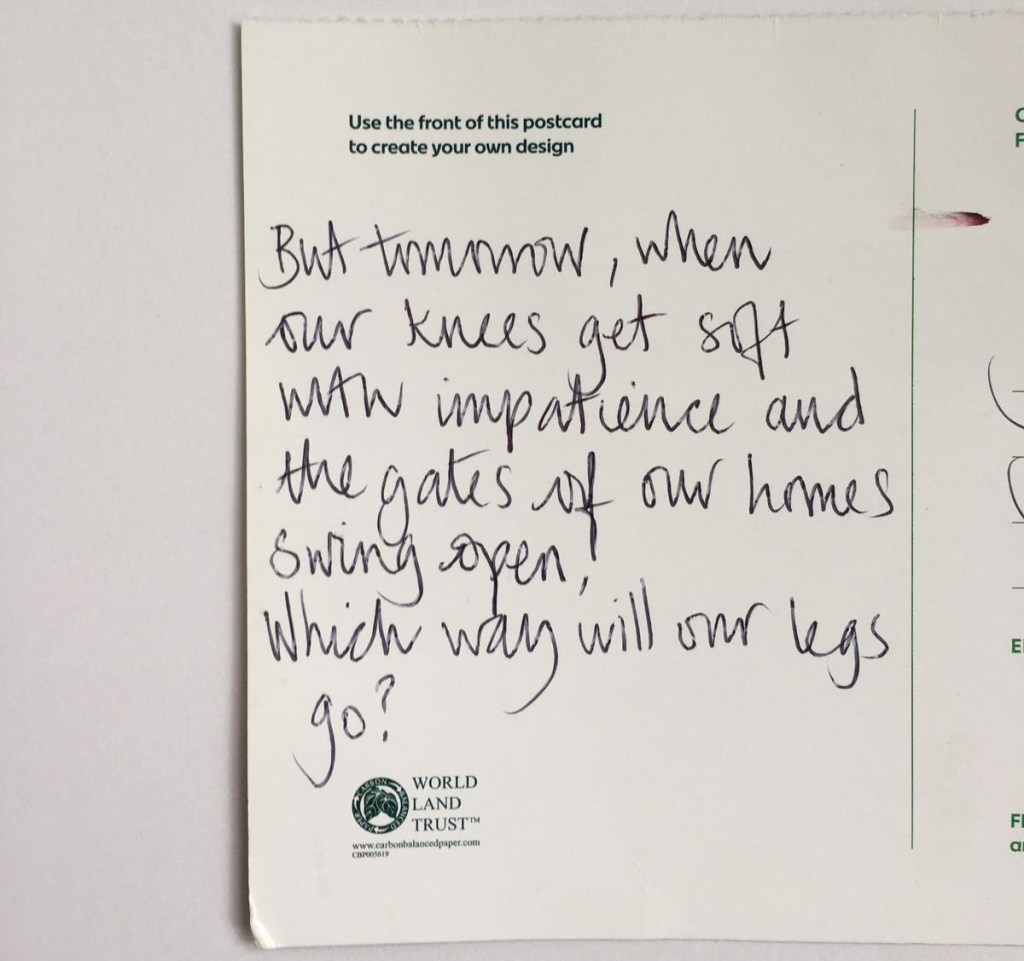 Use the front of this postcard
to create your own design
But tomorrow, when
our knees get soft
with impatience and
the gates of our homes
swing open,
Which way will our legs
go?
CARBON BALANCED PAPER
WORLD
LAND
TRUST™
www.carbonbalancedpaper.com
CBP005619